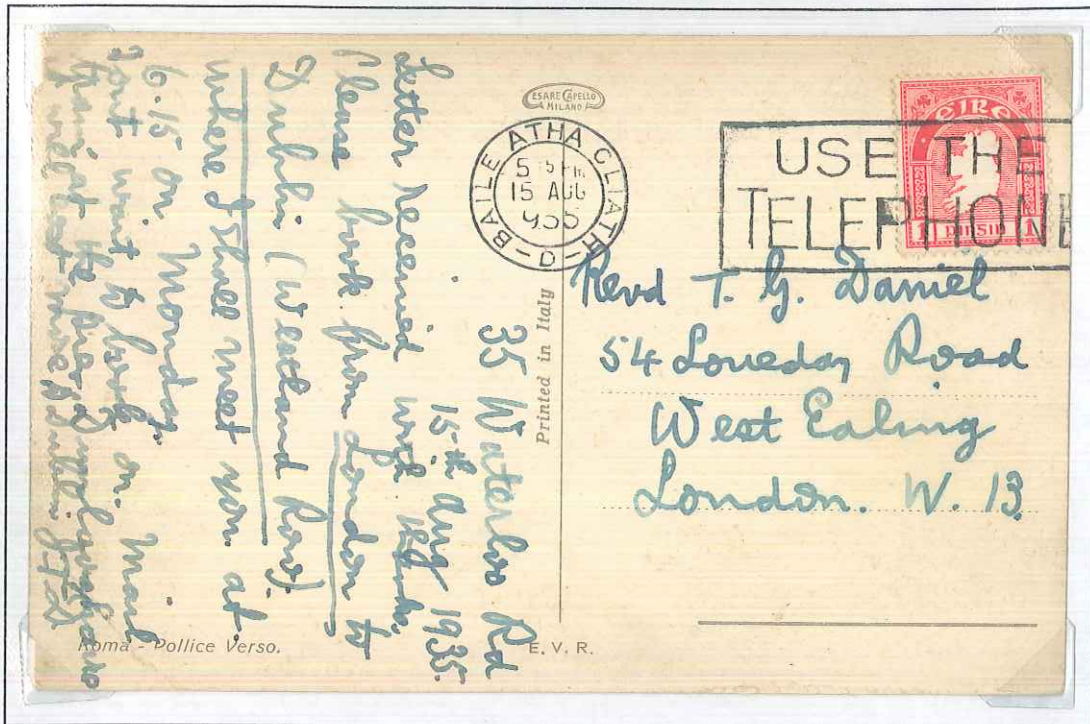 CESARE CAPELLO
MILANO
BAILE ATHA CLIATH
5 15 PM
15 AUG
1935
D
USE THE
TELEPHONE
EIRE
1 PINSIN 1
Revd T. G. Daniel
54 Loveday Road
West Ealing
London. W. 13.
Printed in Italy
35 Waterloo Rd
15th Aug 1935.
Letter received with thanks.
Please book from London to
Dublin (Westland Row).
where I shall meet you at
6.15 on Monday.
Dont want to book on. Mail
train at the pier
Dublin
Roma - Pollice Verso.
E. V. R.